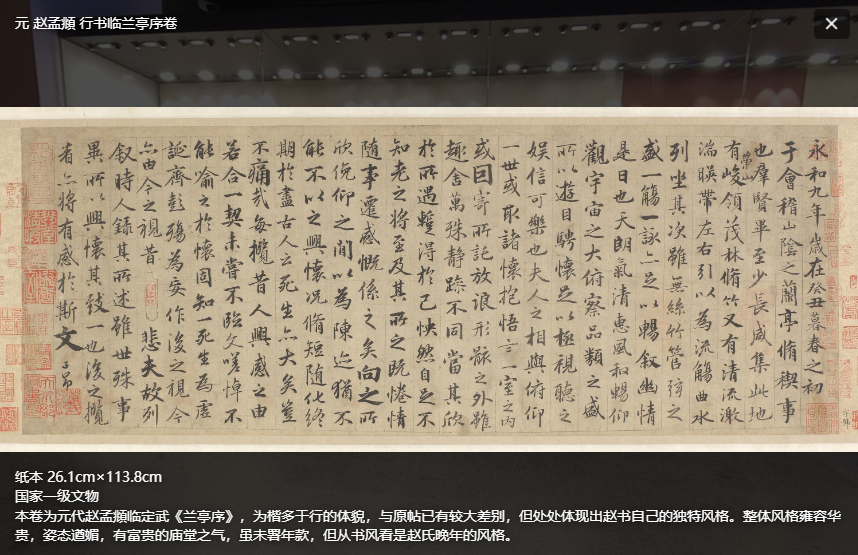 元 赵孟頫 行书临兰亭序卷
永和九年歲在癸丑暮春之初
于會稽山陰之蘭亭脩禊事
也羣賢畢至少長咸集此地
崇山
有峻領茂林脩竹又有清流激
湍暎帶左右引以為流觴曲水
列坐其次雖無絲竹管弦之
盛一觴一詠亦足以暢叙幽情
是日也天朗氣清惠風和暢仰
觀宇宙之大俯察品類之盛
所以遊目騁懷足以極視聽之
娱信可樂也夫人之相與俯仰
一世或取諸懷抱悟言一室之内
或因寄所託放浪形骸之外雖
趣舍萬殊静躁不同當其欣
於所遇蹔得於己怏然自足不
知老之將至及其所之既惓情
隨事遷感慨係之矣向之所
欣俛仰之間以為陳迹猶不
能不以之興懷況脩短隨化終
期於盡古人云死生亦大矣豈
不痛哉每攬昔人興感之由
若合一契未嘗不臨文嗟悼不
能喻之於懷固知一死生為虛
誕齊彭殤為妄作後之視今
亦由今之視昔 悲夫故列
叙時人錄其所述雖世殊事
異所以興懷其致一也後之攬
者亦將有感於斯文
子昂
纸本 26.1cm×113.8cm
国家一级文物
本卷为元代赵孟頫临定武《兰亭序》，为楷多于行的体貌，与原帖已有较大差别，但处处体现出赵书自己的独特风格。整体风格雍容华
贵，姿态遒媚，有富贵的庙堂之气，虽未署年款，但从书风看是赵氏晚年的风格。